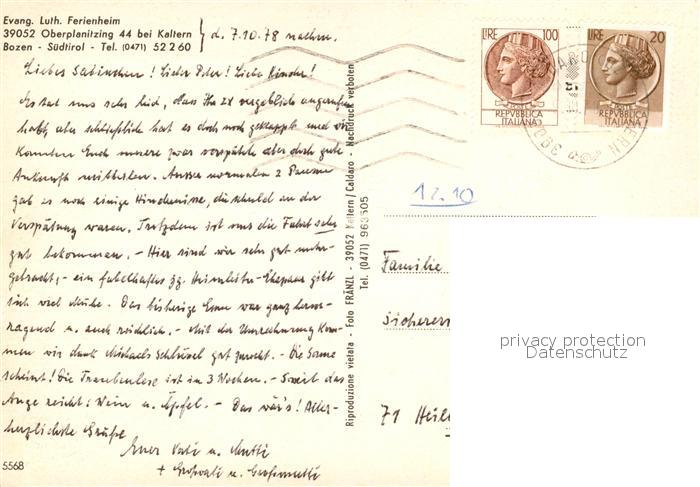 Evang. Luth. Ferienheim
39052 Oberplanitzing 44 bei Kaltern
Bozen - Südtirol - Tel. (0471) 52260
d. 7.10.78 nachm.
Liebes Sabinchen! Lieber Peter! Liebe Kinder!
Es tat uns sehr leid, dass Ihr 2x vergeblich angerufen
habt, aber schliesslich hat es doch noch geklappt und wir
konnten Euch unsere zwar verspätete aber doch gute
Ankunft mitteilen. Ausser normalen 2 Pausen
gab es noch einige Hindernisse, die schuld an der
Verspätung waren. Trotzdem ist uns die Fahrt sehr
gut bekommen. - Hier sind wir sehr gut unter-
gebracht, - ein fabelhaftes jg. Heimleiter-Ehepaar gibt
sich viel Mühe. Das bisherige Essen war ganz hervor-
ragend u. auch reichlich. - Mit der Umrechnung kom-
men wir dank Michaels Schlüssel gut zurecht. - Die Sonne
scheint! Die Traubenlese ist in 3 Wochen. - Soweit das
Auge reicht: Wein u. Äpfel. - Das wär's! Aller-
herzlichste Grüße
Euer Vati u. Mutti
+ Großvati u. Großmutti
5568
Riproduzione vietata - Foto FRÄNZL - 39052 Kaltern / Caldaro - Nachdruck verboten
Tel. (0471) 963505
LIRE 100
REPVBBLICA
ITALIANA
LIRE 20
REPVBBLICA
ITALIANA
12.10
Familie
71 Heil
privacy protection
Datenschutz